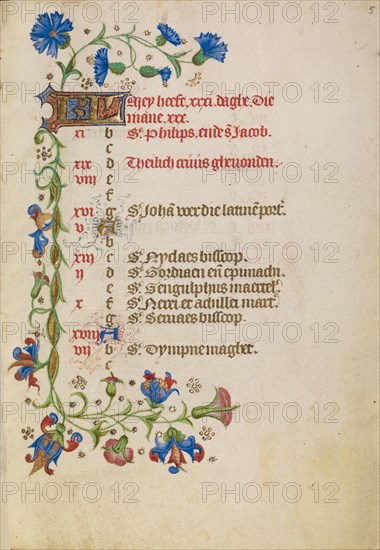 5
KL Mey heeft .xxxi. dagħe. Die
mane .xxx.
xi b Sᵗ. Philips. ende Sᵗ Jacob.
c
xix d Theilich cruus ghevonden.
viii e
f
xvi g Sᵗ. Johā voer die latiinē port.
v A
b
xiii c Sᵗ. Nyclaes bisscop.
ii d Sᵗ. Gordiaen eñ epimachī.
e Sᵗ. Gengulphus maertel.
x f Sᵗ. Nerei et achillei mart.
g Sᵗ. Servaes bisscop.
xviii A
vii b Sᵗ. Dympne maghet.
c
PHOTO 12